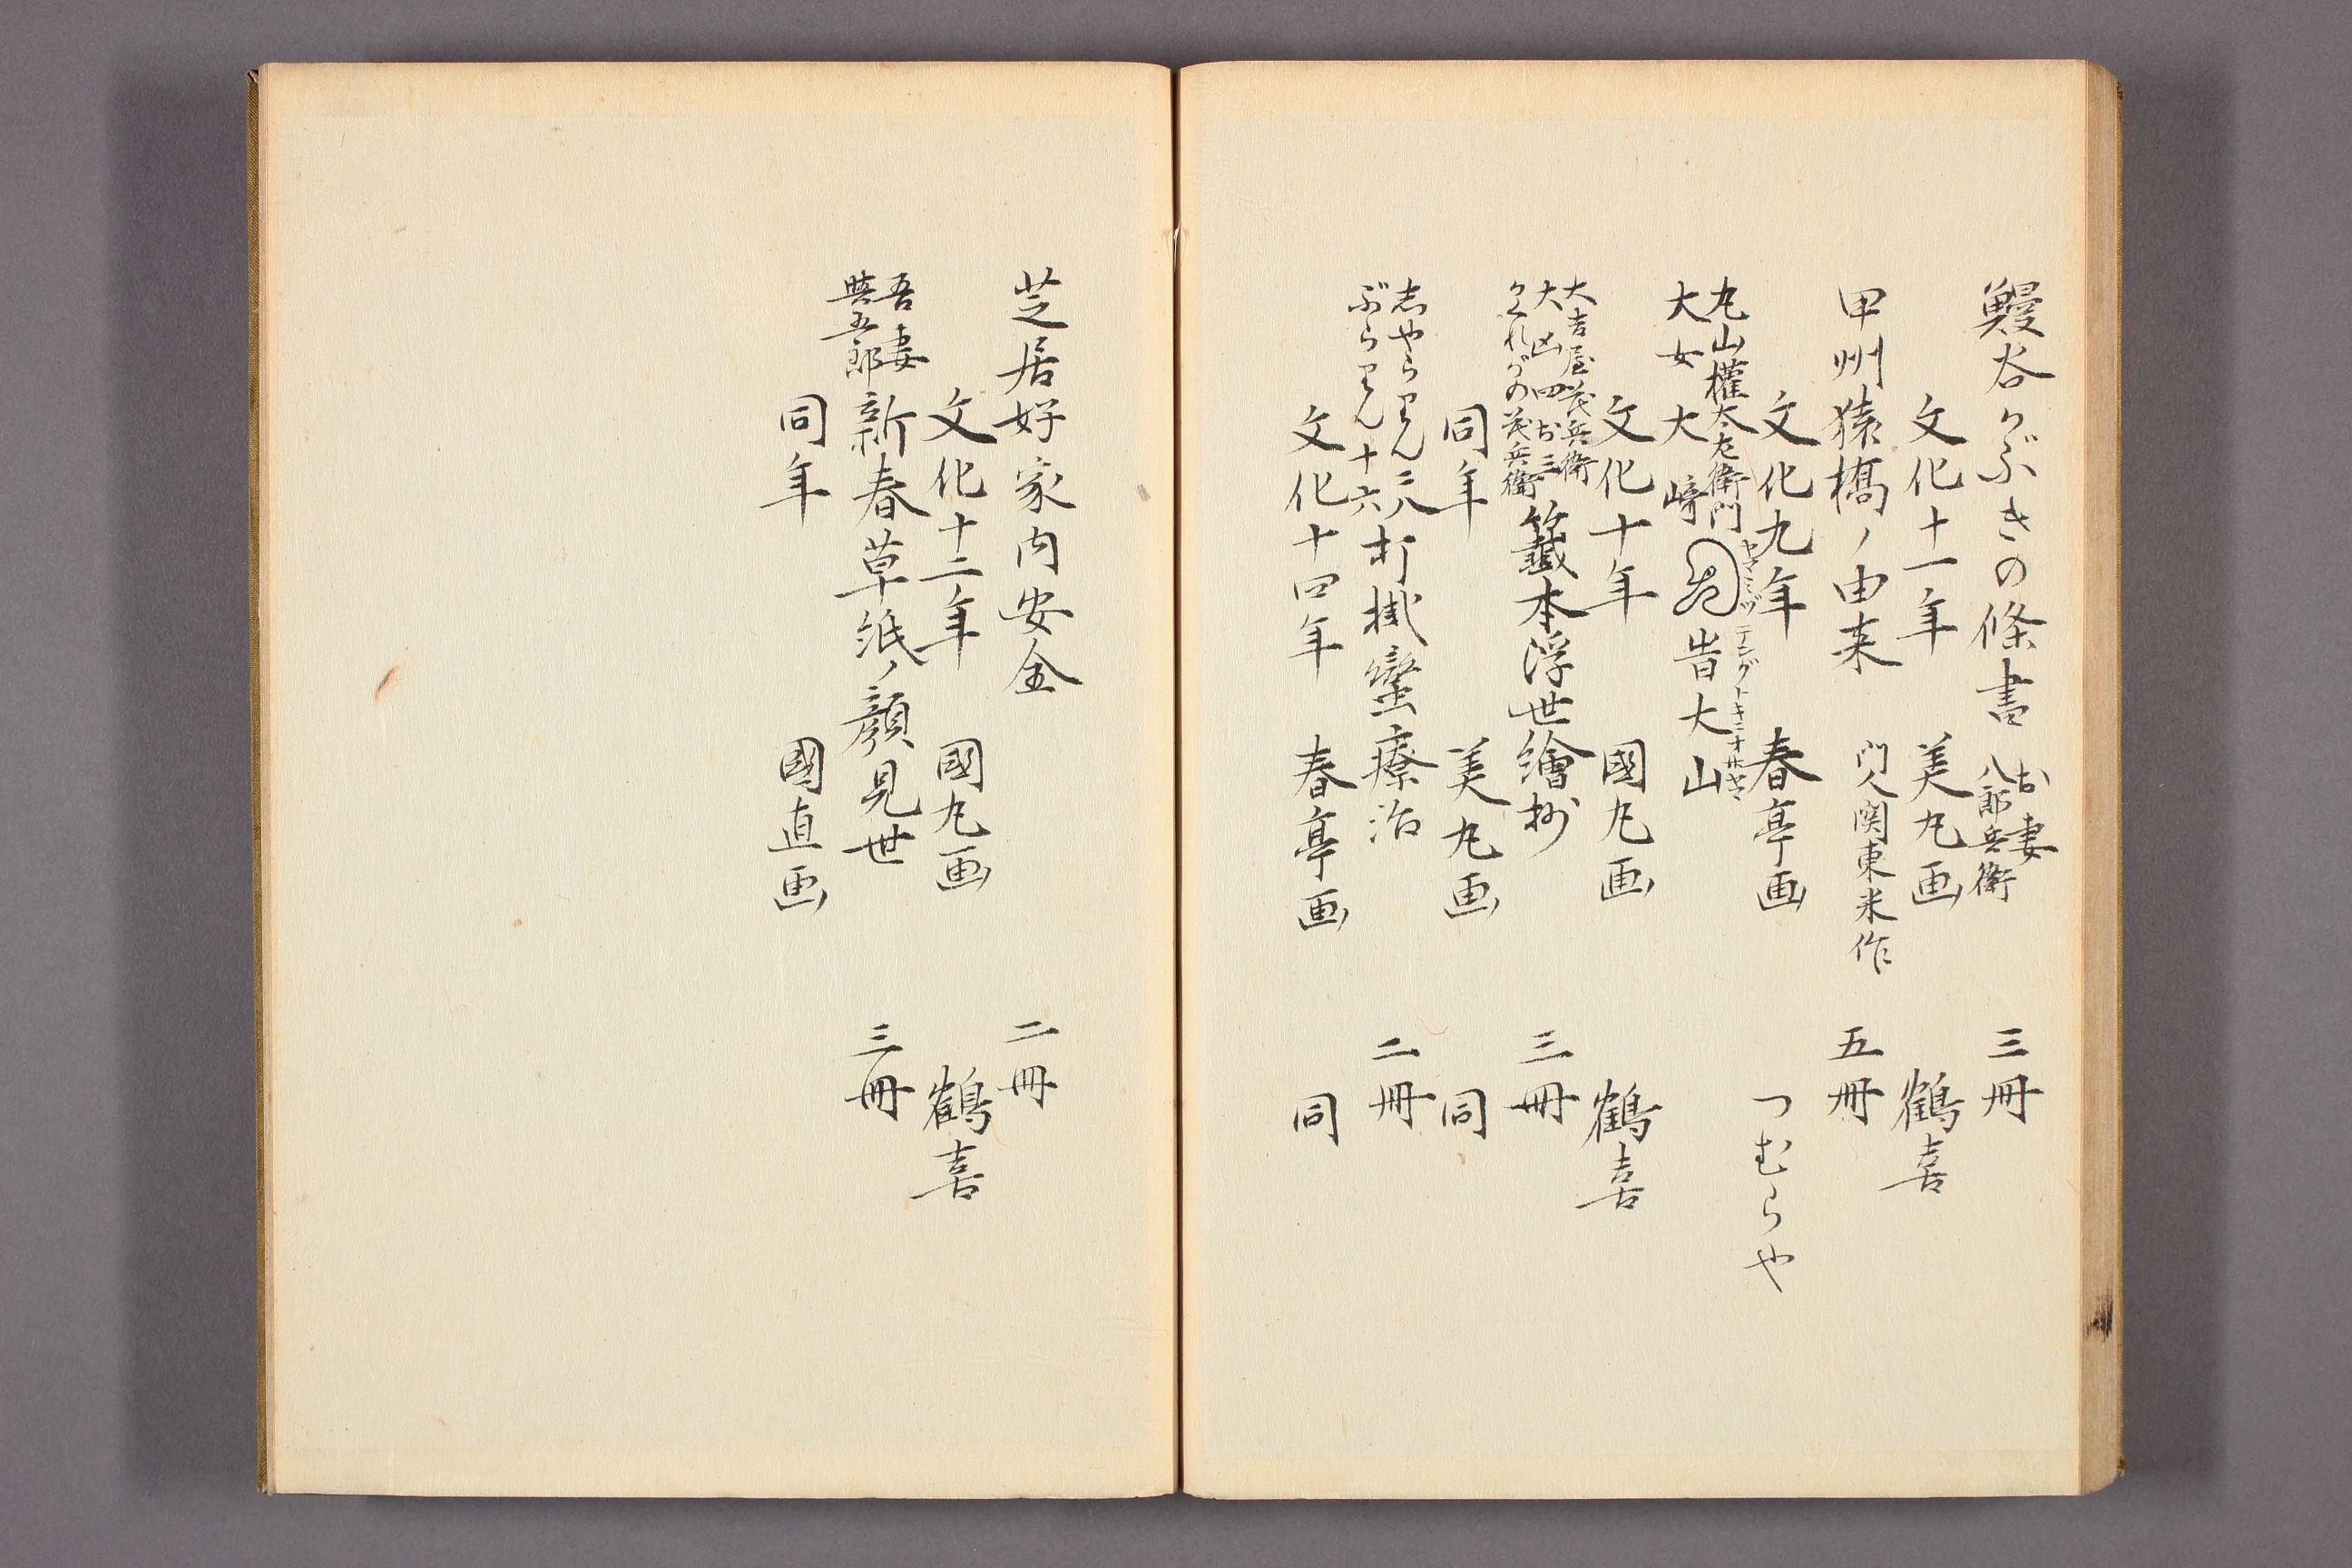 鰻谷かぶきの條書 お妻 八郎兵衛 三冊
文化十一年 美丸画 鶴喜
甲州猿橋ノ由来 門人関東米作 五冊
文化九年 春亭画 つむらや
丸山權太左衛門
大女大﨑
ヤマミヅテングトキニオホヤマ
昔大山
文化十年 國丸画 鶴喜
大吉屋茂兵衛
大凶四お三
かくれがの茂兵衛
籤本浮世繪抄 三冊
同年 美丸画 同
志やらりん三八
ぶらりん十六
打掛蠻療治 二冊
文化十四年 春亭画 同
芝居好家内安全 二冊
文化十二年 國丸画 鶴喜
吾妻
與五郎
新春草紙ノ顔見世 三冊
同年 國直画